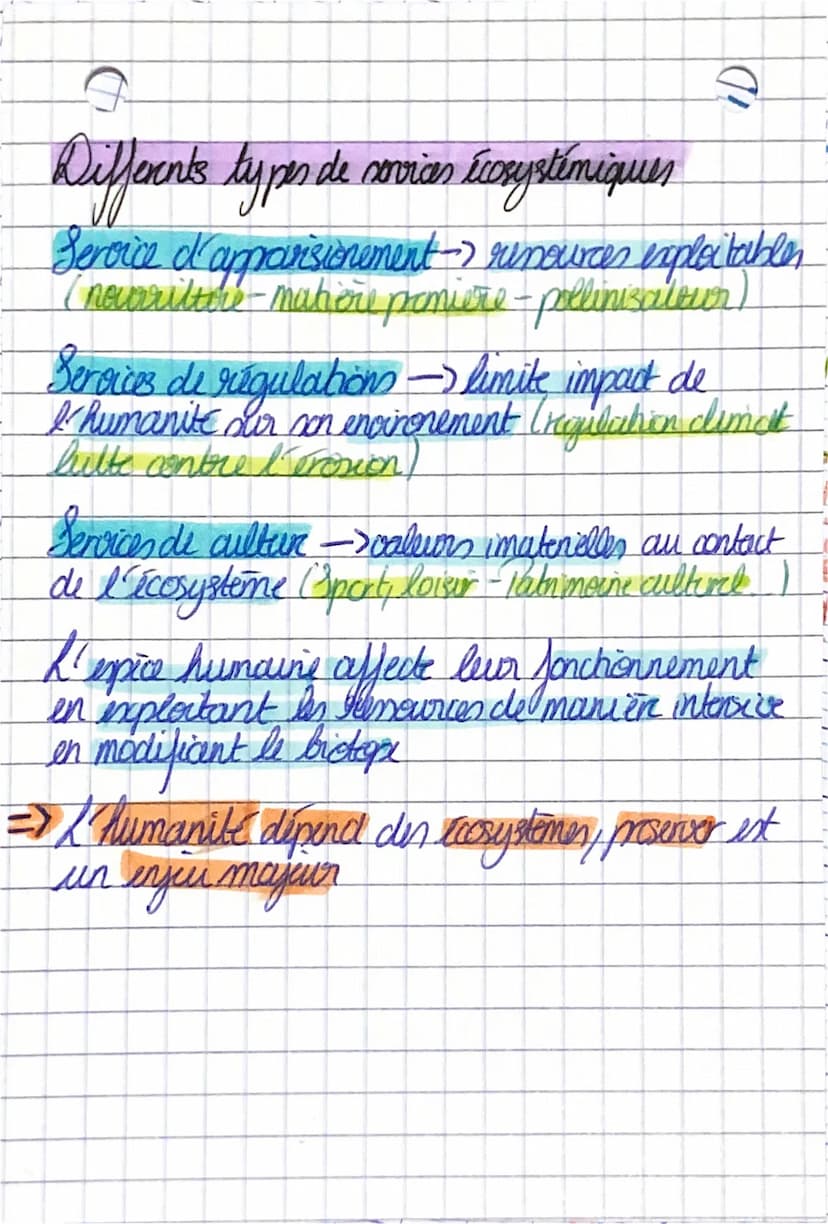 Différents types de services écosystémiques
Service d'apparisionement → ressources exploitables
(nourriture - matière première - pollinisateur)
Services de régulations → limite impact de
l'humanité sur son environement (régulation climat
lutte contre l'érosion)
Services de culture → valeurs imaterielles au contact
de l'écosystème (Sport, loisir - Patrimoine culturel...)
L'espèce humaine affecte leur fonctionnement
en exploitant les ressources de manière intensive
en modifiant le biotope
=> L'humanité dépend des écosystèmes, préserver est
un enjeu majeur